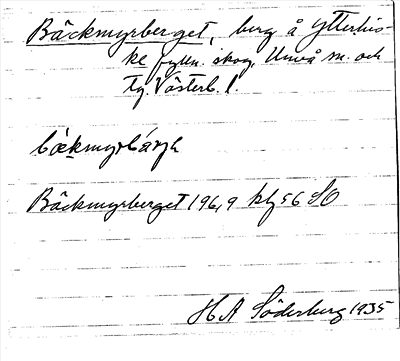 Bäckmyrberget, berg å Ytterhis-
ke fjälln. skog, Umeå m. och
tg. Västerb. l.
bækmyrbárjh
Bäckmyrberget 196,9 kbl 56 SO
H A Söderberg 1935